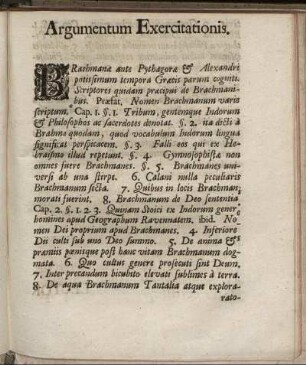 Argumentum Exercitationis.
BRachmanæ ante Pythagoræ & Alexandri
potissimum tempora Græcis parum cogniti.
Scriptores quidam præcipui de Brachmani-
bus. Præfat. Nomen Brachmanum varie
scriptum. Cap. 1. §. 1. Tribum, gentemque Indorum
& Philosophos ac sacerdotes denotat. §. 2. ita dicti à
Brahme quodam, quod vocabulum Indorum lingua
significat perspicacem. §. 3. Falli eos qui ex He-
braismo illud repetunt. §. 4. Gymnosophistæ non
omnes fuere Brachmanes. §. §. 5. Brachmanes uni-
versi ab una stirpe. 6. Calani nulla peculiaris
Brachmanum secta. 7. Quibus in locis Brachman;
morati fuerint. 8. Brachmanum de Deo sententia
Cap. 2. §. 1. 2. 3. Quinam Dixici ex Indorum gente
homines apud Geographum Ravennatem. ibid. No-
men Dei proprium apud Brachmanes. 4. Inferiore
Dii culti sub uno Deo summo. 5. De anima &
præmiis pœnisque post hanc vitam Brachmanum dog-
mata. 6. Quo cultus genere prosecuti sint Deum.
7. Inter precandum bicubito elevati sublimes à terra.
8. De aqua Brachmanum Tantalia atque explora-
rato-